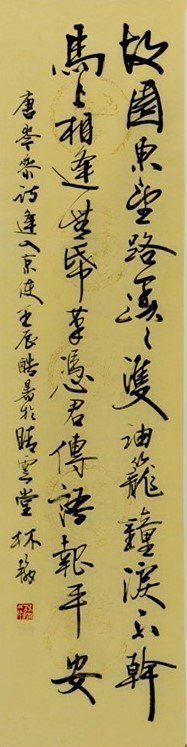 故園東望路漫〻雙袖籠鐘淚不幹
馬上相逢無帋筆憑君傳語報平安
唐岑參詩逢入京使壬辰酷暑於晴雲堂 林